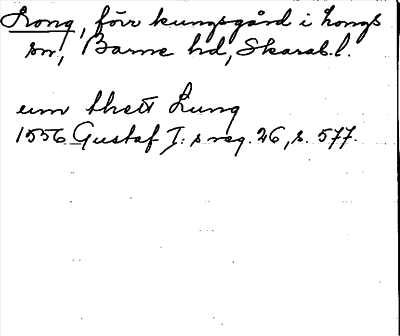 Long, förr kungsgård i Longs
sn, Barne hd, Skarab. l.
um thett Lung
1556 Gustaf I: s reg. 26, s. 577.